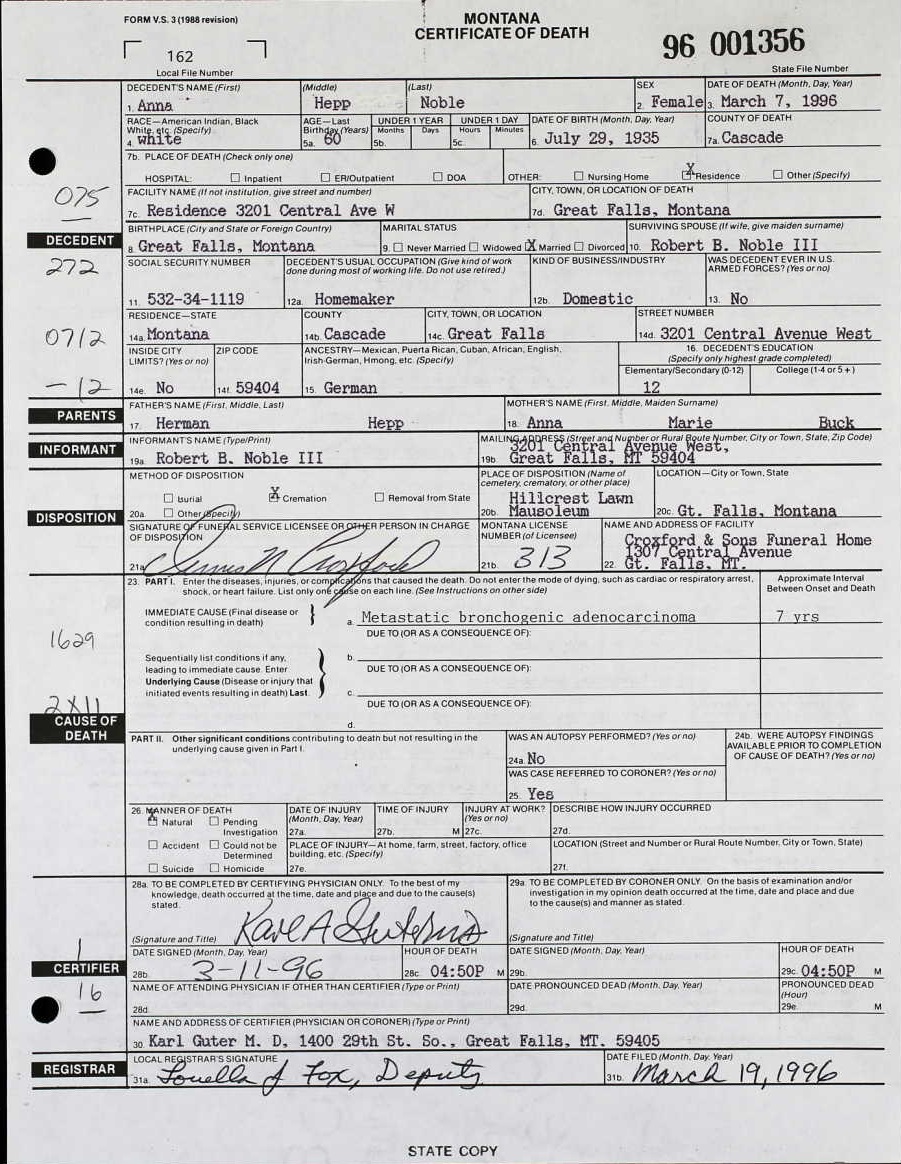 FORM V.S. 3 (1988 revision)
MONTANA
CERTIFICATE OF DEATH
162
Local File Number
96 001356
State File Number
DECEDENT'S NAME (First) (Middle) (Last) SEX DATE OF DEATH (Month, Day, Year)
1. Anna Hepp Noble 2. Female 3. March 7, 1996
RACE—American Indian, Black White, etc. (Specify) AGE—Last Birthday (Years) UNDER 1 YEAR UNDER 1 DAY DATE OF BIRTH (Month, Day, Year) COUNTY OF DEATH
Months Days Hours Minutes
4. White 5a. 60 5b. 5c. 6. July 29, 1935 7a. Cascade
7b. PLACE OF DEATH (Check only one)
HOSPITAL: ☐ Inpatient ☐ ER/Outpatient ☐ DOA OTHER: ☐ Nursing Home ☒ Residence ☐ Other (Specify)
075
FACILITY NAME (If not institution, give street and number) CITY, TOWN, OR LOCATION OF DEATH
7c. Residence 3201 Central Ave W 7d. Great Falls, Montana
DECEDENT
BIRTHPLACE (City and State or Foreign Country) MARITAL STATUS SURVIVING SPOUSE (If wife, give maiden surname)
8. Great Falls, Montana 9. ☐ Never Married ☐ Widowed ☒ Married ☐ Divorced 10. Robert B. Noble III
272
SOCIAL SECURITY NUMBER DECEDENT'S USUAL OCCUPATION (Give kind of work done during most of working life. Do not use retired.) KIND OF BUSINESS/INDUSTRY WAS DECEDENT EVER IN U.S. ARMED FORCES? (Yes or no)
11. 532-34-1119 12a. Homemaker 12b. Domestic 13. No
RESIDENCE—STATE COUNTY CITY, TOWN, OR LOCATION STREET NUMBER
0712
14a. Montana 14b. Cascade 14c. Great Falls 14d. 3201 Central Avenue West
INSIDE CITY LIMITS? (Yes or no) ZIP CODE ANCESTRY—Mexican, Puerta Rican, Cuban, African, English, Irish-German, Hmong, etc. (Specify) 16. DECEDENT'S EDUCATION (Specify only highest grade completed)
Elementary/Secondary (0-12) College (1-4 or 5+)
-12
14e. No 14f. 59404 15. German 12
PARENTS
FATHER'S NAME (First, Middle, Last) MOTHER'S NAME (First, Middle, Maiden Surname)
17. Herman Hepp 18. Anna Marie Buck
INFORMANT
INFORMANT'S NAME (Type/Print) MAILING ADDRESS (Street and Number or Rural Route Number, City or Town, State, Zip Code)
3201 Central Avenue West,
19a. Robert B. Noble III 19b. Great Falls, MT 59404
METHOD OF DISPOSITION PLACE OF DISPOSITION (Name of cemetery, crematory, or other place) LOCATION—City or Town, State
☐ Burial ☒ Cremation ☐ Removal from State
20a. ☐ Other (Specify) 20b. Hillcrest Lawn Mausoleum 20c. Gt. Falls, Montana
DISPOSITION
SIGNATURE OF FUNERAL SERVICE LICENSEE OR OTHER PERSON IN CHARGE OF DISPOSITION MONTANA LICENSE NUMBER (of Licensee) NAME AND ADDRESS OF FACILITY
Croxford & Sons Funeral Home
1307 Central Avenue
21a. 21b. 313 22. Gt. Falls, MT.
23. PART I. Enter the diseases, injuries, or complications that caused the death. Do not enter the mode of dying, such as cardiac or respiratory arrest, shock, or heart failure. List only one cause on each line. (See Instructions on other side)
Approximate Interval Between Onset and Death
IMMEDIATE CAUSE (Final disease or condition resulting in death) a. Metastatic bronchogenic adenocarcinoma 7 yrs
DUE TO (OR AS A CONSEQUENCE OF):
1629
Sequentially list conditions if any, leading to immediate cause. Enter Underlying Cause (Disease or injury that initiated events resulting in death) Last.
b.
DUE TO (OR AS A CONSEQUENCE OF):
c.
DUE TO (OR AS A CONSEQUENCE OF):
d.
2X11
CAUSE OF DEATH
PART II. Other significant conditions contributing to death but not resulting in the underlying cause given in Part I.
WAS AN AUTOPSY PERFORMED? (Yes or no)
24a. No
24b. WERE AUTOPSY FINDINGS AVAILABLE PRIOR TO COMPLETION OF CAUSE OF DEATH? (Yes or no)
WAS CASE REFERRED TO CORONER? (Yes or no)
25. Yes
26. MANNER OF DEATH DATE OF INJURY (Month, Day, Year) TIME OF INJURY INJURY AT WORK? (Yes or no) DESCRIBE HOW INJURY OCCURRED
☒ Natural ☐ Pending Investigation 27a. 27b. M 27c. 27d.
☐ Accident ☐ Could not be Determined PLACE OF INJURY—At home, farm, street, factory, office building, etc. (Specify) LOCATION (Street and Number or Rural Route Number, City or Town, State)
☐ Suicide ☐ Homicide 27e. 27f.
28a. TO BE COMPLETED BY CERTIFYING PHYSICIAN ONLY. To the best of my knowledge, death occurred at the time, date and place and due to the cause(s) stated.
29a. TO BE COMPLETED BY CORONER ONLY. On the basis of examination and/or investigation in my opinion death occurred at the time, date and place and due to the cause(s) and manner as stated.
(Signature and Title) (Signature and Title)
1
CERTIFIER
16
DATE SIGNED (Month, Day, Year) HOUR OF DEATH DATE SIGNED (Month, Day, Year) HOUR OF DEATH
28b. 3-11-96 28c. 04:50P M 29b. 29c. 04:50P M
NAME OF ATTENDING PHYSICIAN IF OTHER THAN CERTIFIER (Type or Print) DATE PRONOUNCED DEAD (Month, Day, Year) PRONOUNCED DEAD (Hour)
28d. 29d. 29e. M
NAME AND ADDRESS OF CERTIFIER (PHYSICIAN OR CORONER) (Type or Print)
30. Karl Guter M. D, 1400 29th St. So., Great Falls, MT. 59405
REGISTRAR
LOCAL REGISTRAR'S SIGNATURE DATE FILED (Month, Day, Year)
31a. Louella J Fox, Deputy 31b. March 19, 1996
STATE COPY